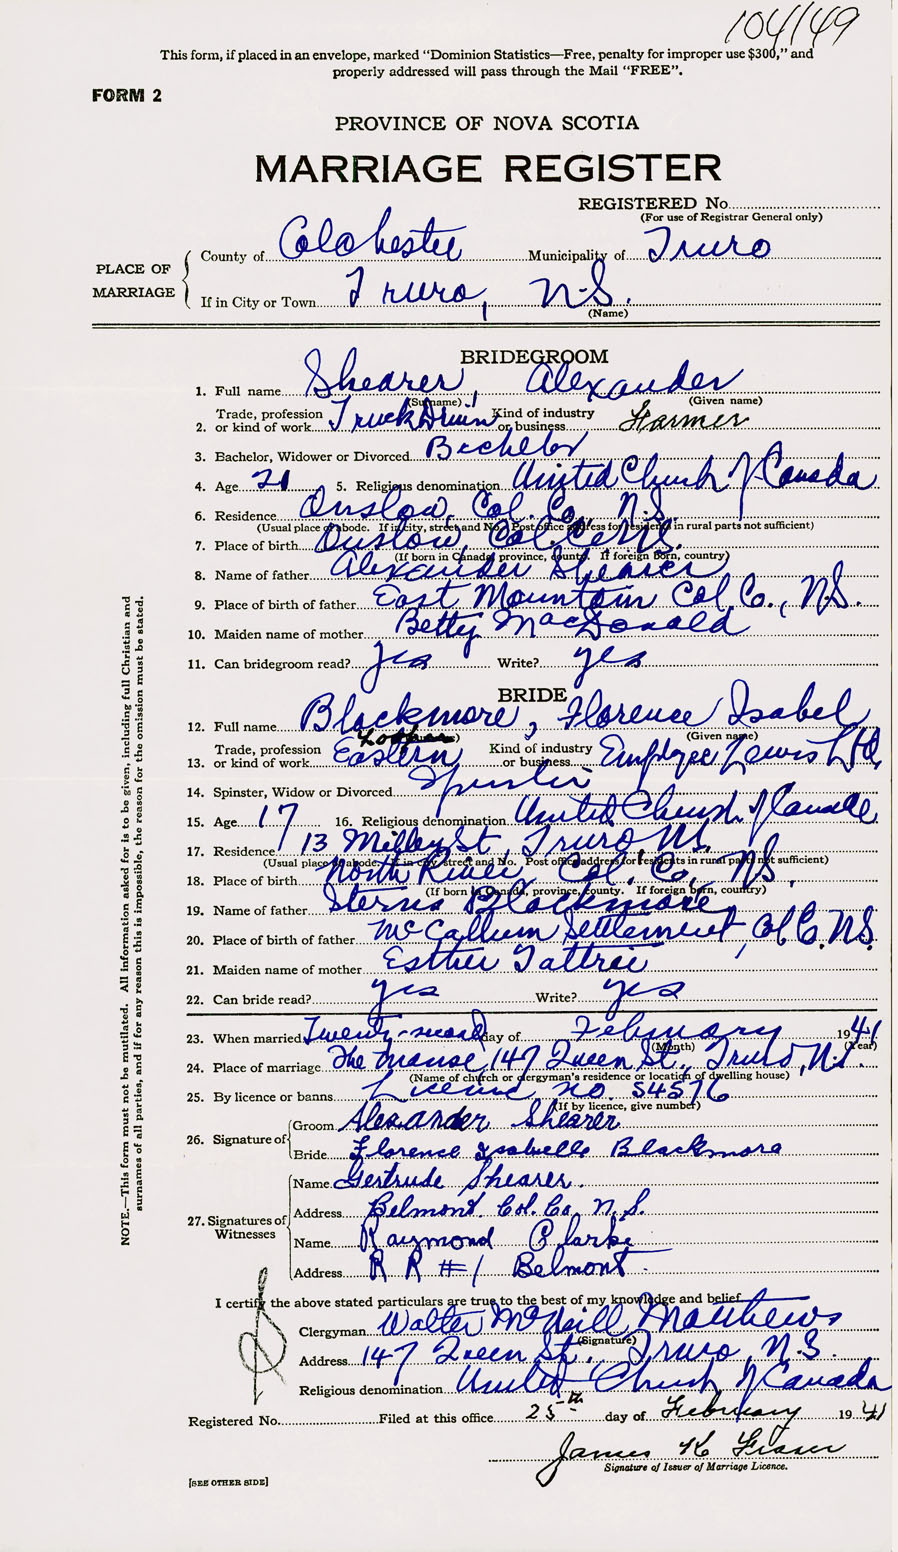 104149
This form, if placed in an envelope, marked “Dominion Statistics—Free, penalty for improper use $300,” and
properly addressed will pass through the Mail “FREE”.
FORM 2
PROVINCE OF NOVA SCOTIA
MARRIAGE REGISTER
REGISTERED No.
(For use of Registrar General only)
PLACE OF MARRIAGE
County of Colchester Municipality of Truro
If in City or Town Truro, N.S.
(Name)
BRIDEGROOM
1. Full name Shearer, Alexander
(Surname) (Given name)
2. Trade, profession or kind of work Truck Driver Kind of industry or business Farmer
3. Bachelor, Widower or Divorced Bachelor
4. Age 21 5. Religious denomination United Church of Canada
6. Residence Onslow, Col. Co. N.S.
(Usual place of abode. If in city, street and No. Post office address for residents in rural parts not sufficient)
7. Place of birth Onslow, Col. Co. N.S.
(If born in Canada, province, county. If foreign born, country)
8. Name of father Alexander Shearer
9. Place of birth of father East Mountain Col. Co., N.S.
10. Maiden name of mother Betty MacDonald
11. Can bridegroom read? yes Write? yes
BRIDE
12. Full name Blackmore, Florence Isabel
(Given name)
13. Trade, profession or kind of work Eastern Kind of industry or business Employee Lewis Ltd.
14. Spinster, Widow or Divorced Spinster
15. Age 17 16. Religious denomination United Church of Canada
17. Residence 13 St, Truro N.S.
(Usual place of abode. If in city, street and No. Post office address for residents in rural parts not sufficient)
18. Place of birth North River Col. Co., N.S.
(If born in Canada, province, county. If foreign born, country)
19. Name of father Sterns Blackmore
20. Place of birth of father McCallum Settlement, Col Co. N.S.
21. Maiden name of mother Esther Tattrie
22. Can bride read? yes Write? yes
23. When married Twenty-second day of February 1941
(Month) (Year)
24. Place of marriage The Manse, 147 Queen St., Truro, N.S.
(Name of church or clergyman's residence or location of dwelling house)
25. By licence or banns Licence no. 54576
(If by licence, give number)
26. Signature of
Groom Alexander Shearer
Bride Florence Isabelle Blackmore
27. Signatures of Witnesses
Name Gertrude Shearer.
Address Belmont. Col. Co. N.S.
Name Raymond Clarke
Address R R #1 Belmont.
I certify the above stated particulars are true to the best of my knowledge and belief
Clergyman Walter McNeill Matthews
(Signature)
Address 147 Queen St., Truro, N.S.
Religious denomination United Church of Canada
Registered No. Filed at this office 25th day of February 1941
James K Fraser
Signature of Issuer of Marriage Licence.
[SEE OTHER SIDE]
NOTE.—This form must not be mutilated. All information asked for is to be given, including full Christian and
surnames of all parties, and if for any reason this is impossible, the reason for the omission must be stated.